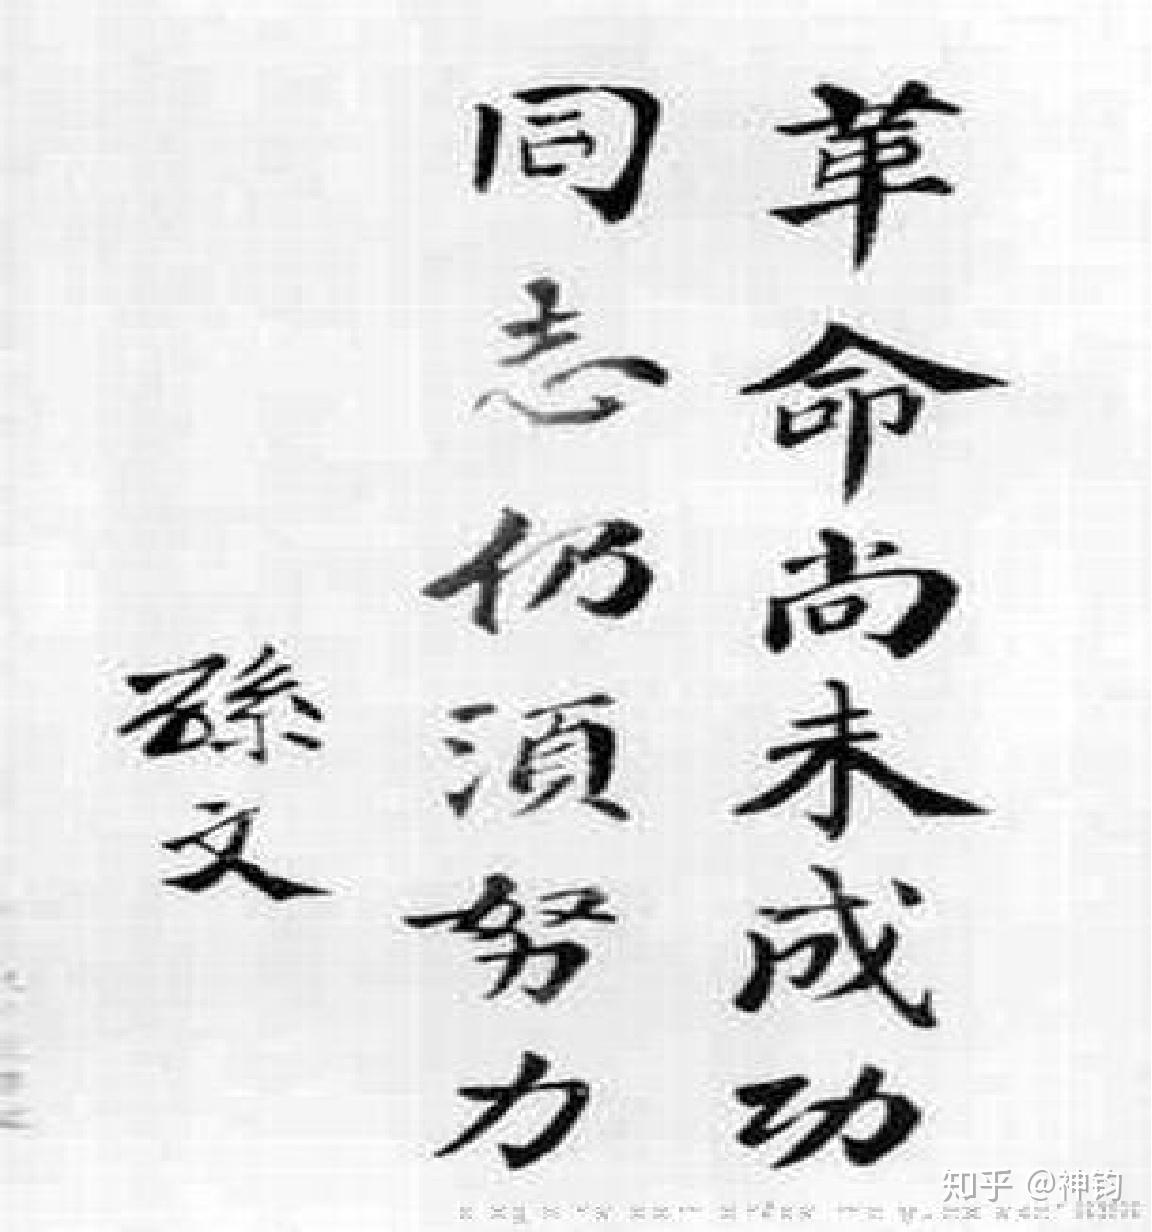 革命尚未成功
同志仍須努力
孫文
知乎 @神钧